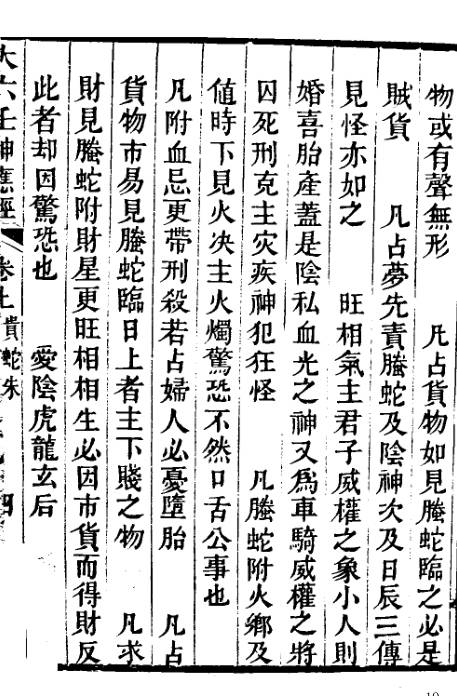 物或有聲無形　凡占貨物如見螣蛇臨之必是
賊貨　凡占夢先責螣蛇及陰神次及日辰三傳
見怪亦如之　旺相氣主君子威權之象小人則
婚喜胎產蓋是陰私血光之神又爲車騎威權之將
囚死刑克主灾疾神犯狂怪　凡螣蛇附火鄉及
値時下見火决主火燭驚恐不然口舌公事也
凡附血忌更帶刑殺若占婦人必憂墮胎　凡占
貨物市易見螣蛇臨日上者主下賤之物　凡求
財見螣蛇附財星更旺相相生必因市貨而得財反
此者却因驚恐也　愛陰虎龍玄后
大六壬神應經　卷上　貴蛇朱　四
19